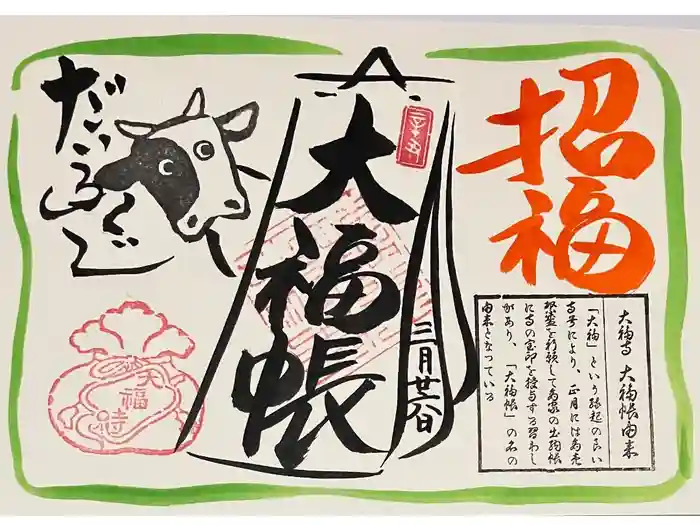 招福
大福寺 大福帳由来
「大福」という縁起の良い
寺号により、正月には商売
繁盛を祈願して商家の出納帳
に寺の宝印を授与する習わし
があり、「大福帳」の名の
由来となっている
大福帳
三月廿二日
だいふくじ
大福寺